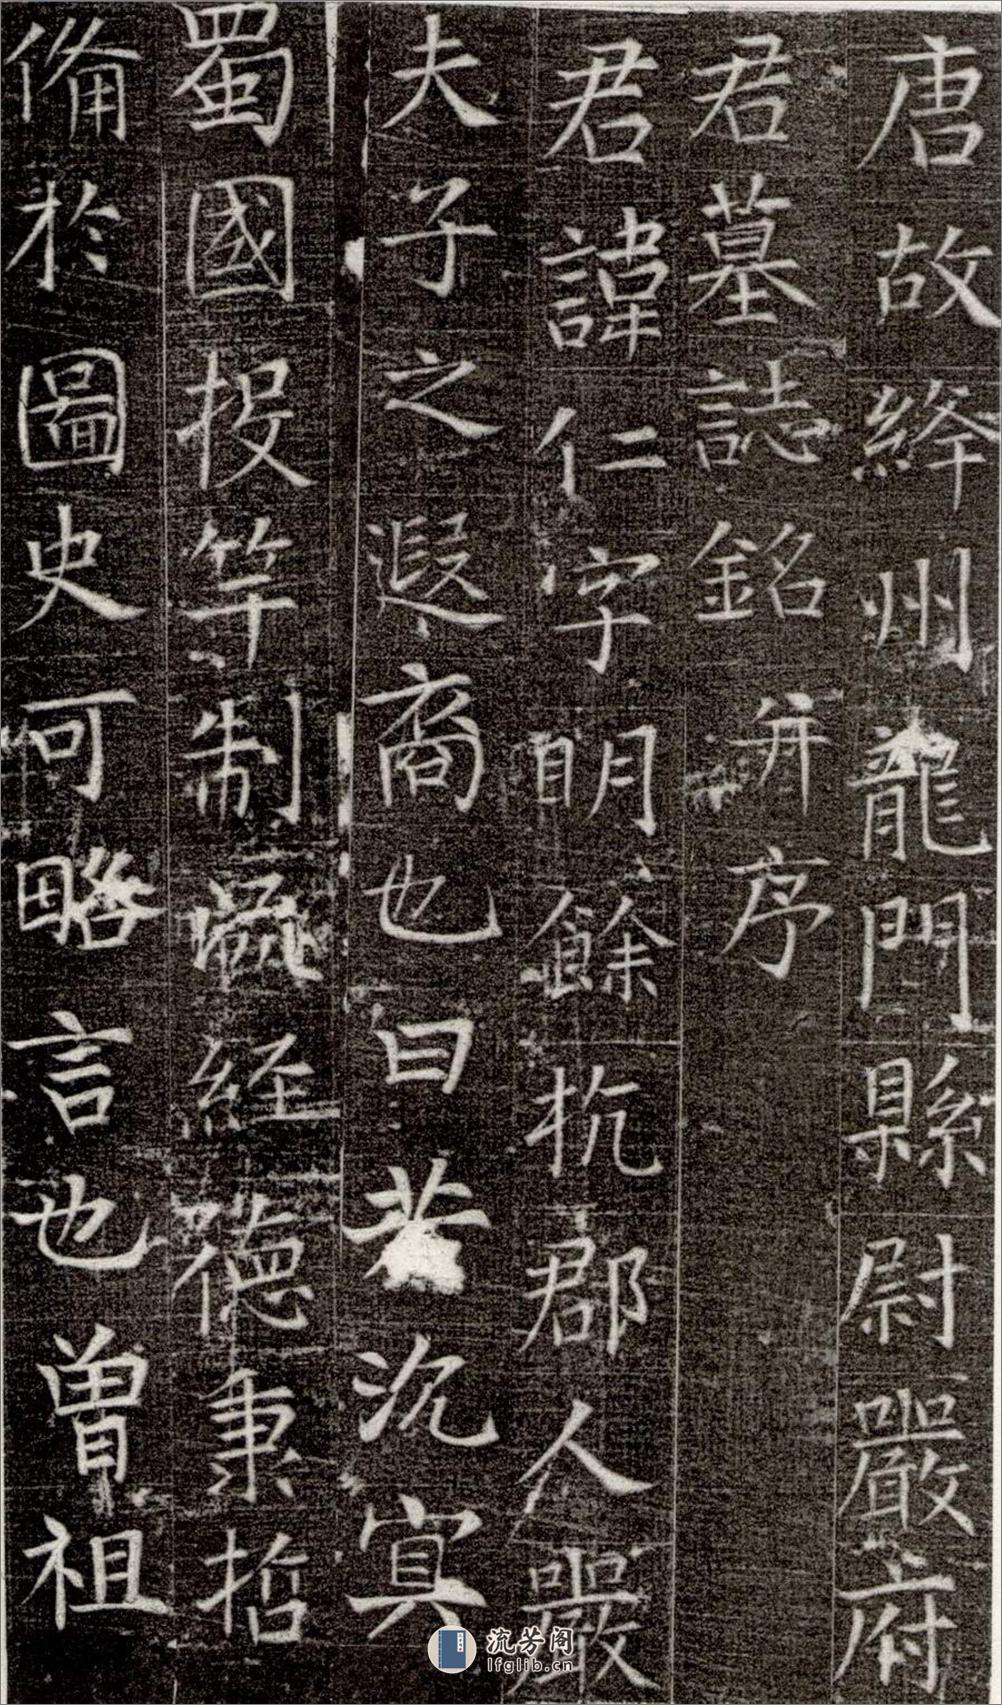 唐故絳州龍門縣尉嚴府
君墓誌銘并序
君諱仁字明餘杭郡人嚴
夫子之遐裔也曰若沉冥
蜀國投竿制經德秉哲
備於圖史可略言也曾祖
流芳阁
lfglib.cn